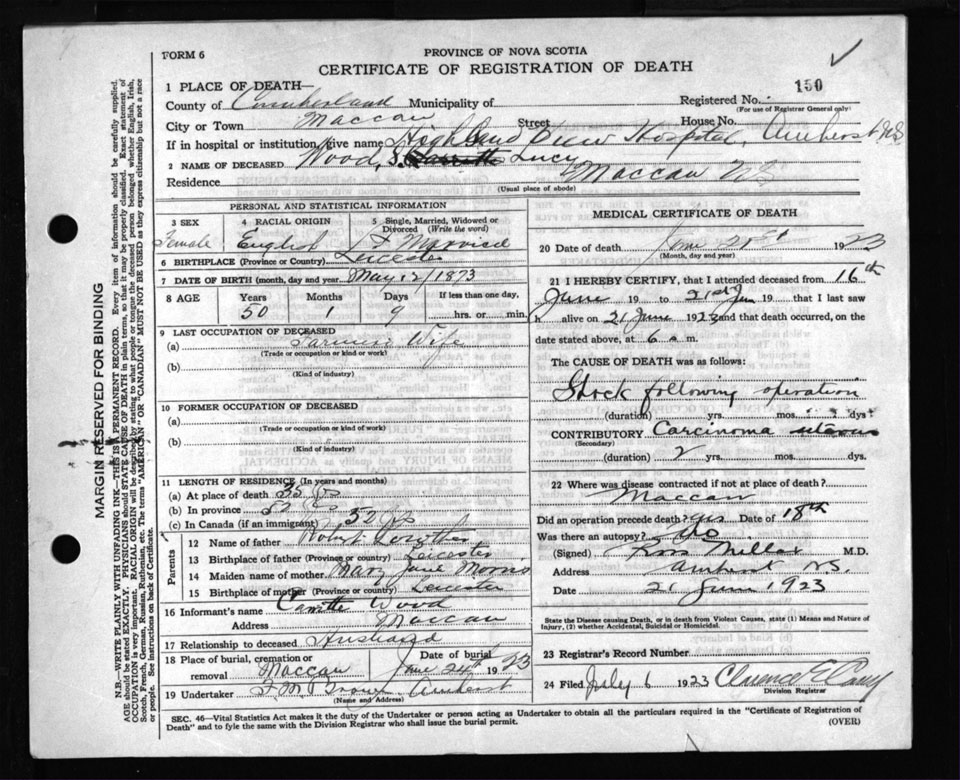 FORM 6
PROVINCE OF NOVA SCOTIA
CERTIFICATE OF REGISTRATION OF DEATH
150
1 PLACE OF DEATH—
County of Cumberland Municipality of
Registered No.
(For use of Registrar General only)
City or Town Maccan Street House No.
If in hospital or institution, give name Highland View Hospital, Amherst N.S
2 NAME OF DECEASED Wood, Lucy
Residence Maccan N.S
(Usual place of abode)
PERSONAL AND STATISTICAL INFORMATION
3 SEX 4 RACIAL ORIGIN 5 Single, Married, Widowed or Divorced (Write the word)
Female English Married
6 BIRTHPLACE (Province or Country) Leicester
7 DATE OF BIRTH (month, day and year) May 12/1873
8 AGE Years Months Days If less than one day,
50 1 9 hrs. or min.
9 LAST OCCUPATION OF DECEASED
(a) Farmers Wife
(Trade or occupation or kind or work)
(b)
(Kind of industry)
10 FORMER OCCUPATION OF DECEASED
(a)
(Trade or occupation or kind of work)
(b)
(Kind of industry)
11 LENGTH OF RESIDENCE (In years and months)
(a) At place of death
(b) In province
(c) In Canada (if an immigrant)
Parents
12 Name of father Robert
13 Birthplace of father (Province or country) Leicester
14 Maiden name of mother Mary Jane
15 Birthplace of mother (Province or country) Leicester
16 Informant's name Wood
Address Maccan
17 Relationship to deceased Husband
18 Place of burial, cremation or removal Maccan
Date of burial June 24th 1923
19 Undertaker Amherst
(Name and Address)
MEDICAL CERTIFICATE OF DEATH
20 Date of death June 21st 1923
(Month, day and year)
21 I HEREBY CERTIFY, that I attended deceased from 16th
June 19 to 21st June 19 that I last saw
h alive on 21 June 1923 and that death occurred, on the
date stated above, at 6 a m.
The CAUSE OF DEATH was as follows:
Shock following operation
(duration) yrs. mos. dys.
CONTRIBUTORY Carcinoma uterus
(Secondary)
(duration) 2 yrs. mos. dys.
22 Where was disease contracted if not at place of death?
Maccan
Did an operation precede death? yes Date of 18th
Was there an autopsy? No
(Signed) Ross Millar M.D.
Address Amherst N.S.
Date 21 June 1923
State the Disease causing Death, or in death from Violent Causes, state (1) Means and Nature of Injury, (2) whether Accidental, Suicidal or Homicidal.
23 Registrar's Record Number
24 Filed July 6 1923 Clarence E
Division Registrar
SEC. 46—Vital Statistics Act makes it the duty of the Undertaker or person acting as Undertaker to obtain all the particulars required in the "Certificate of Registration of
Death" and to fyle the same with the Division Registrar who shall issue the burial permit.
(OVER)
MARGIN RESERVED FOR BINDING
N.B.—WRITE PLAINLY WITH UNFADING INK—THIS IS A PERMANENT RECORD. Every item of information should be carefully supplied.
AGE should be stated EXACTLY. PHYSICIANS should STATE CAUSE OF DEATH in plain terms, so that it may be properly classified. Exact statement of
OCCUPATION is very important. RACIAL ORIGIN will be described by stating to what people or tongue the deceased person belonged whether English, Irish,
Scotch, French, German, Russian, Ruthenian, etc. The terms "AMERICAN" OR "CANADIAN" MUST NOT BE USED as they express citizenship but not a race
or people. See instructions on back of Certificate.